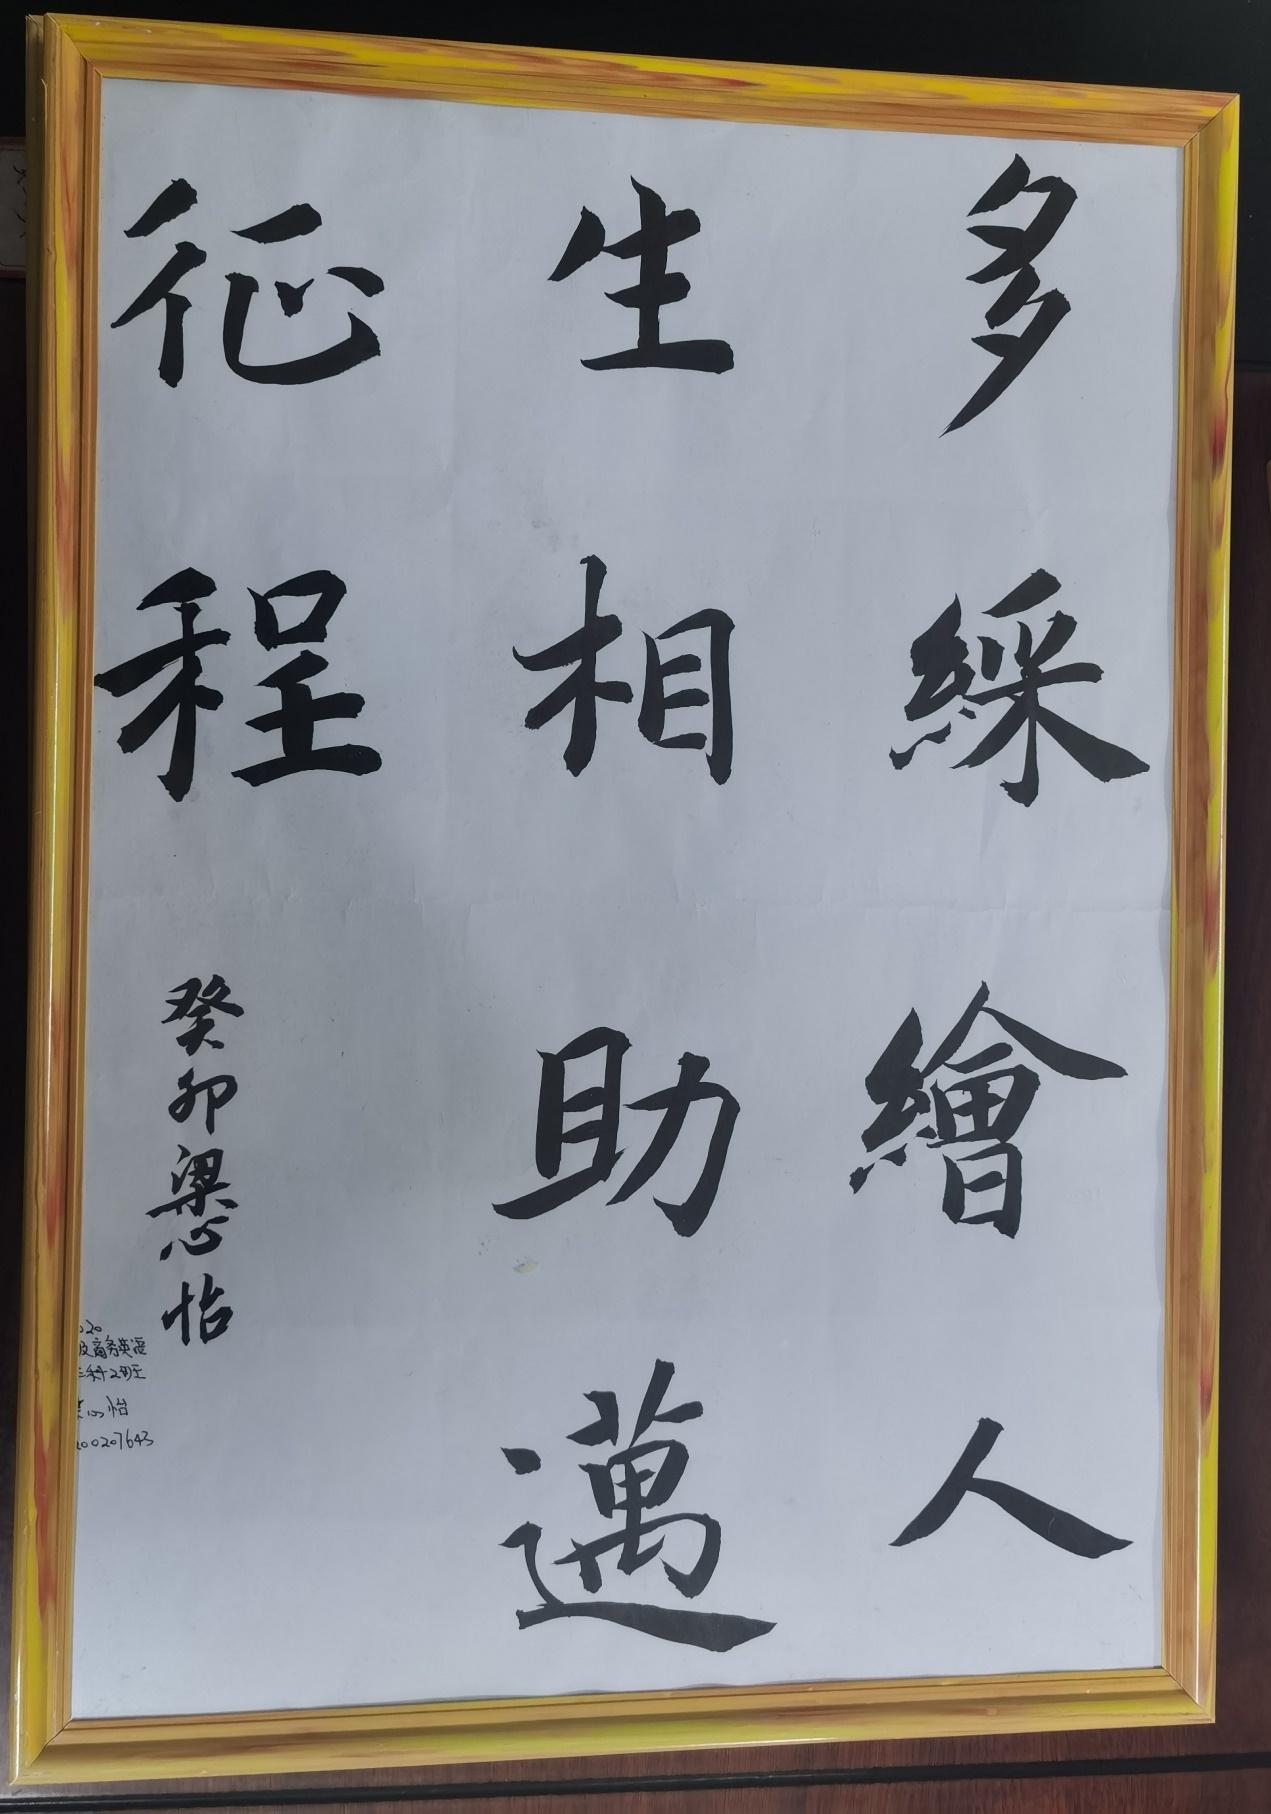 多綵繪人
生相助邁
征程
癸卯梁心怡
020
商务英语
科2班
心怡
200207643